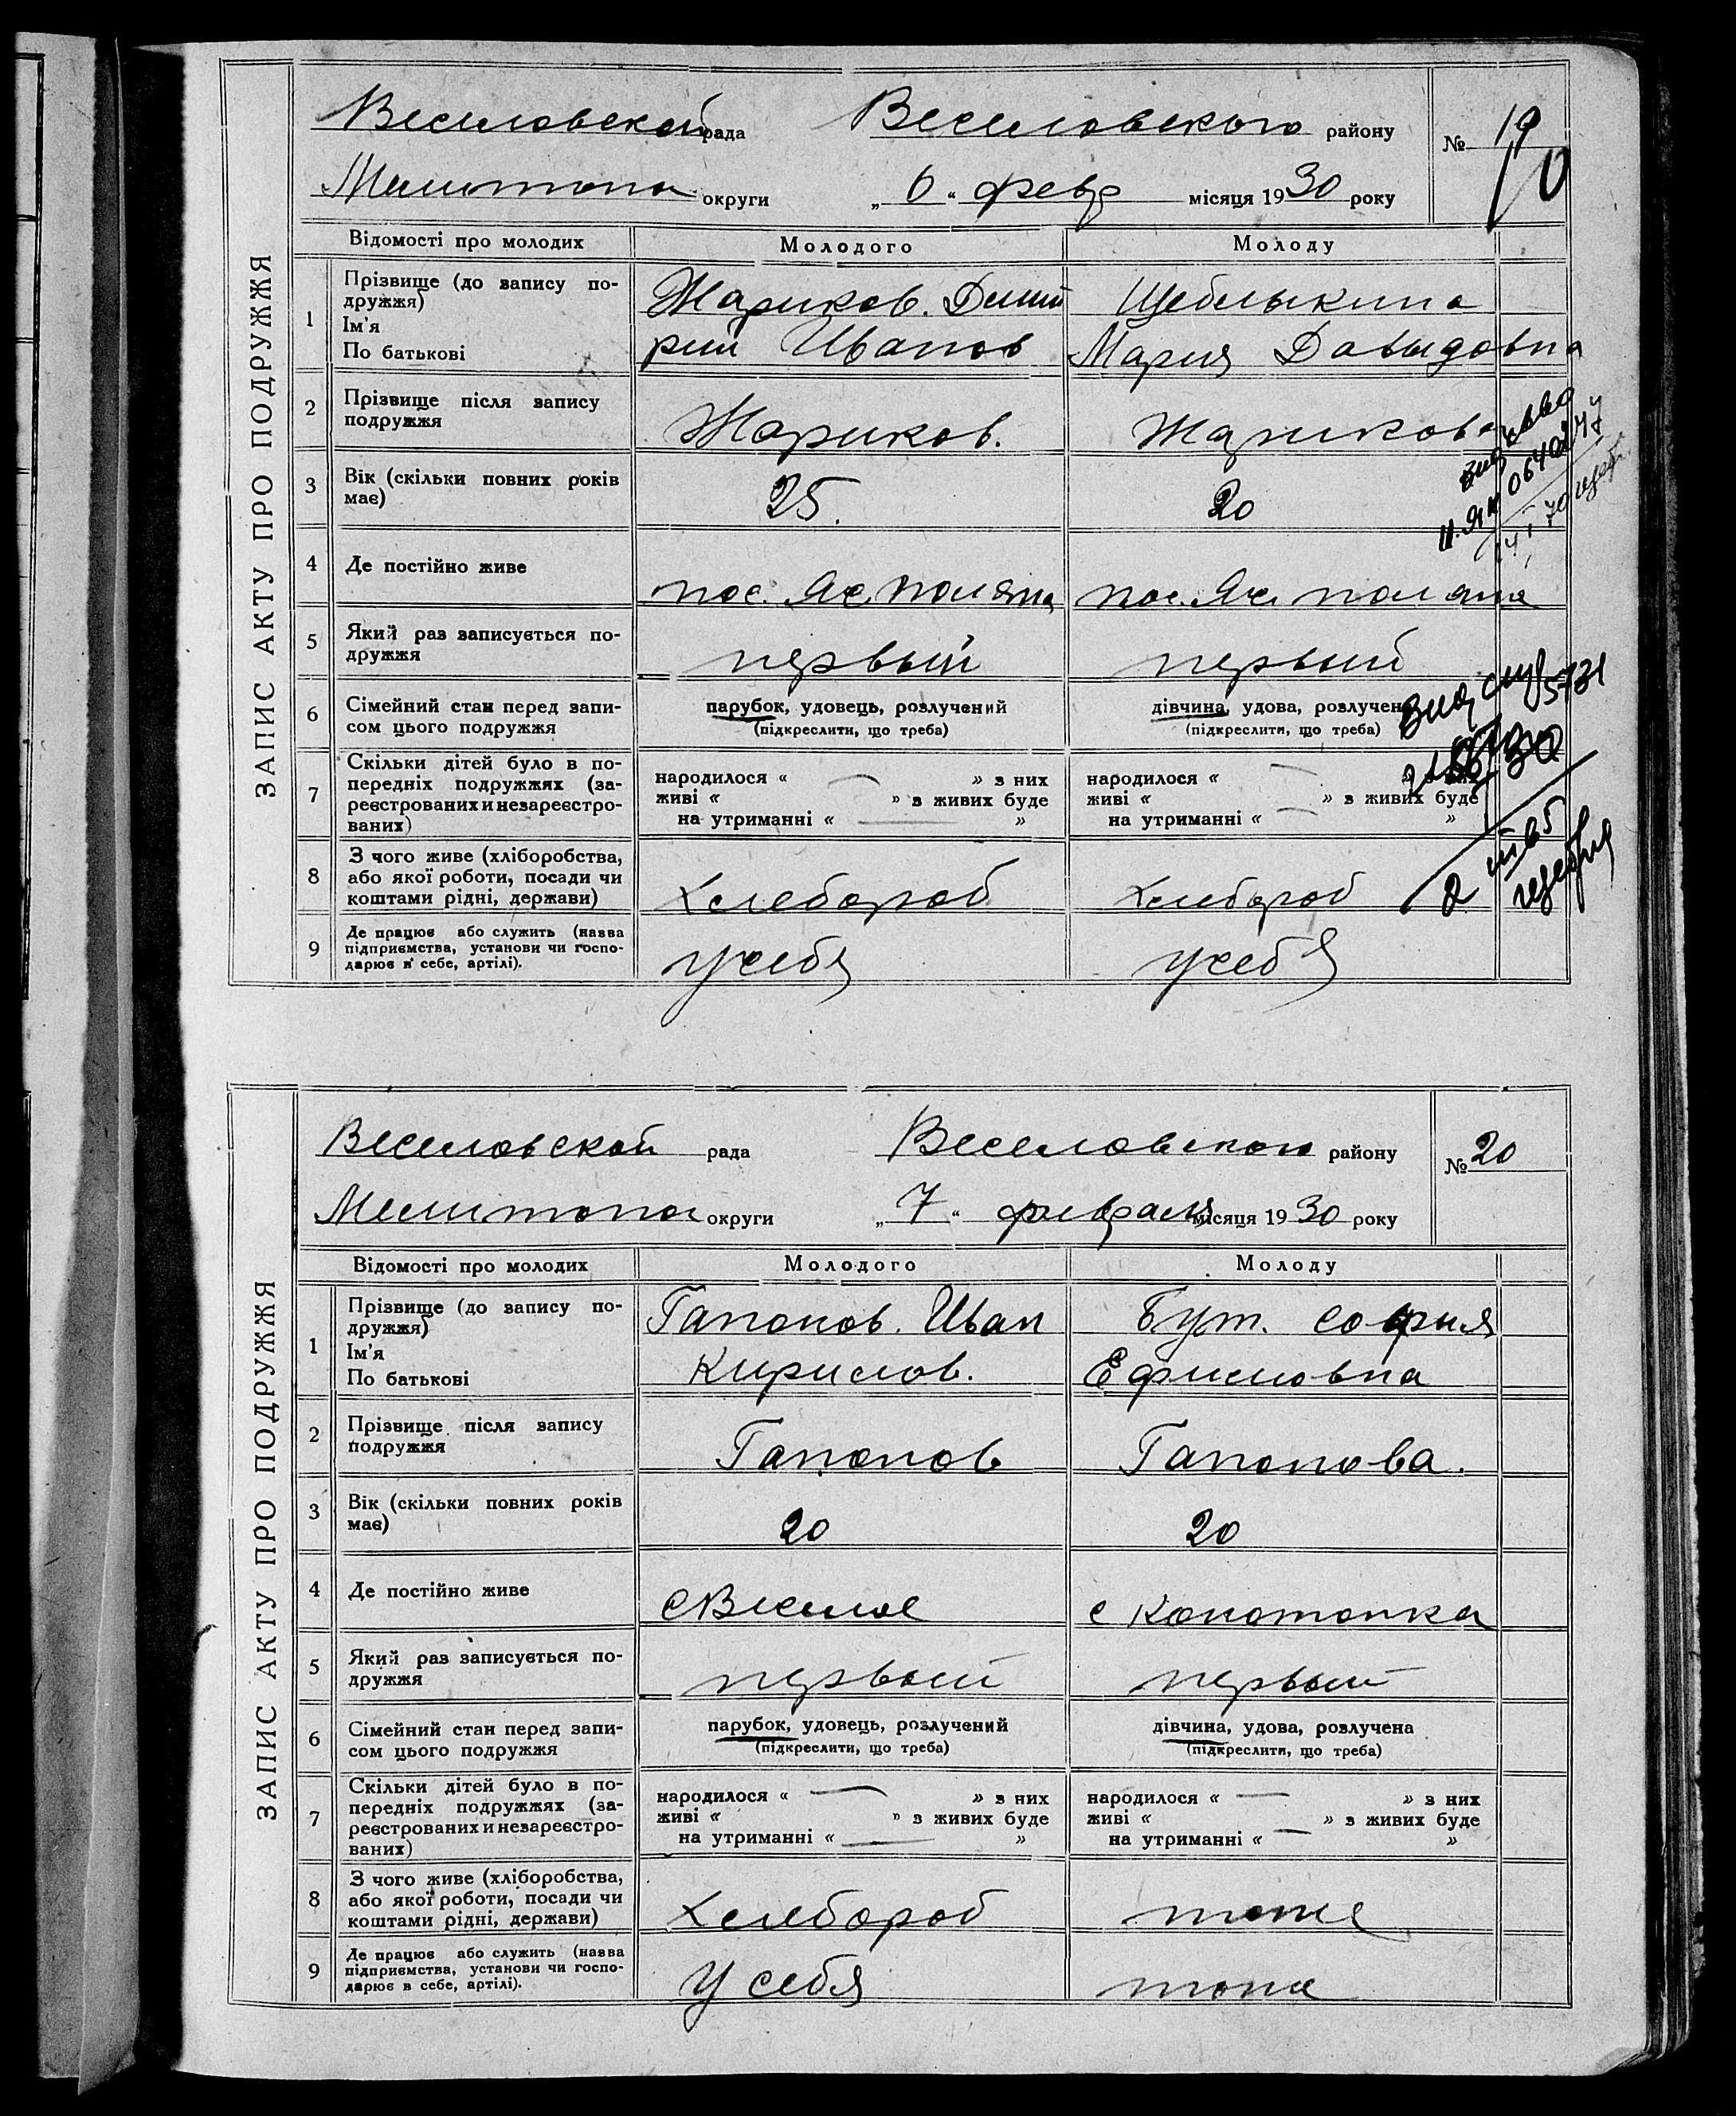 ЗАПИС АКТУ ПРО ПОДРУЖЖЯ
Веселовской рада Веселовского району № 19
Мелитопол округи „ 6 “ февр місяця 1930 року
Відомості про молодих Молодого Молоду
1 Прізвище (до запису по-
дружжя)
Ім'я
По батькові
Жариков. Димит
рий Иванов
Щеблыкина
Мария Давыдовна
2 Прізвище після запису
подружжя
Жариков. Жарикова
3 Вік (скільки повних років
має)
25. 20
4 Де постійно живе
пос. Яс. поляна пос. Яс. поляна
5 Який раз записується по-
дружжя
первый первый
6 Сімейний стан перед запи-
сом цього подружжя
парубок, удовець, розлучений
(підкреслити, що треба)
дівчина, удова, розлучена
(підкреслити, що треба)
7 Скільки дітей було в по-
передніх подружжях (за-
реєстрованих и незареєстро-
ваних)
народилося « » з них
живі « » з живих буде
на утриманні « »
народилося « » з них
живі « » з живих буде
на утриманні « »
8 З чого живе (хліборобства,
або якої роботи, посади чи
коштами рідні, держави)
Хлебороб Хлебороб
9 Де працює або служить (назва
підприємства, установи чи госпо-
дарює в себе, артілі).
у себя у себя
ЗАПИС АКТУ ПРО ПОДРУЖЖЯ
Веселовской рада Веселовского району № 20
Мелитопол округи „ 7 “ февраля місяця 1930 року
Відомості про молодих Молодого Молоду
1 Прізвище (до запису по-
дружжя)
Ім'я
По батькові
Гапонов. Иван
Кирилов.
Бут. Софья
Ефимовна
2 Прізвище після запису
подружжя
Гапонов Гапонова.
3 Вік (скільки повних років
має)
20 20
4 Де постійно живе
с Веселое с Конотопка
5 Який раз записується по-
дружжя
первый первый
6 Сімейний стан перед запи-
сом цього подружжя
парубок, удовець, розлучений
(підкреслити, що треба)
дівчина, удова, розлучена
(підкреслити, що треба)
7 Скільки дітей було в по-
передніх подружжях (за-
реєстрованих и незареєстро-
ваних)
народилося « » з них
живі « » з живих буде
на утриманні « »
народилося « » з них
живі « » з живих буде
на утриманні « »
8 З чого живе (хліборобства,
або якої роботи, посади чи
коштами рідні, держави)
Хлебороб тоже
9 Де працює або служить (назва
підприємства, установи чи госпо-
дарює в себе, артілі).
у себя тоже